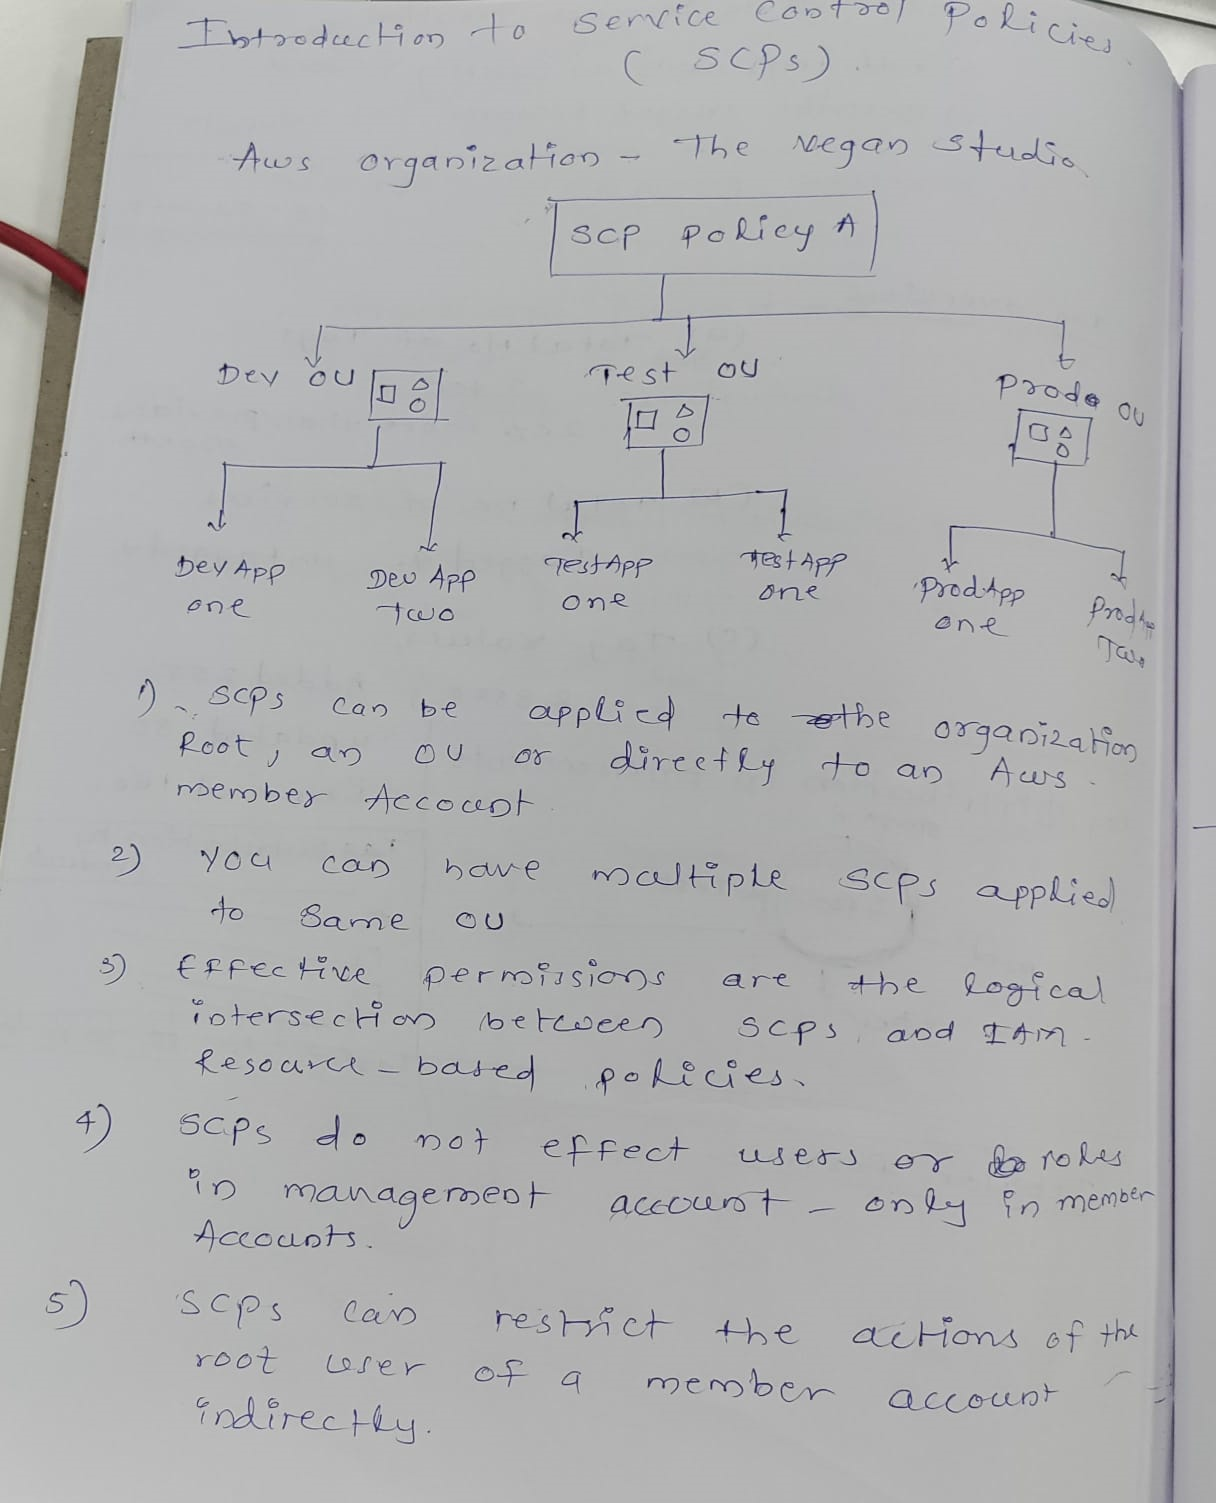 Introduction to Service Control Policies
( SCPs).
Aws organization - The Vegan Studio
SCP Policy A
Dev OU
Test OU
Prod OU
Dev App
one
Dev App
Two
TestApp
one
TestApp
one
ProdApp
one
ProdApp
Two
1) SCPs can be applied to the organization
Root, an OU or directly to an Aws
member Account
2) You can have multiple SCPs applied
to Same OU
3) Effective permissions are the logical
intersection between SCPs and IAM -
Resource - based policies.
4) SCPs do not effect users or roles
in management account - only in member
Accounts.
5) SCPs can restrict the actions of the
root user of a member account
indirectly.